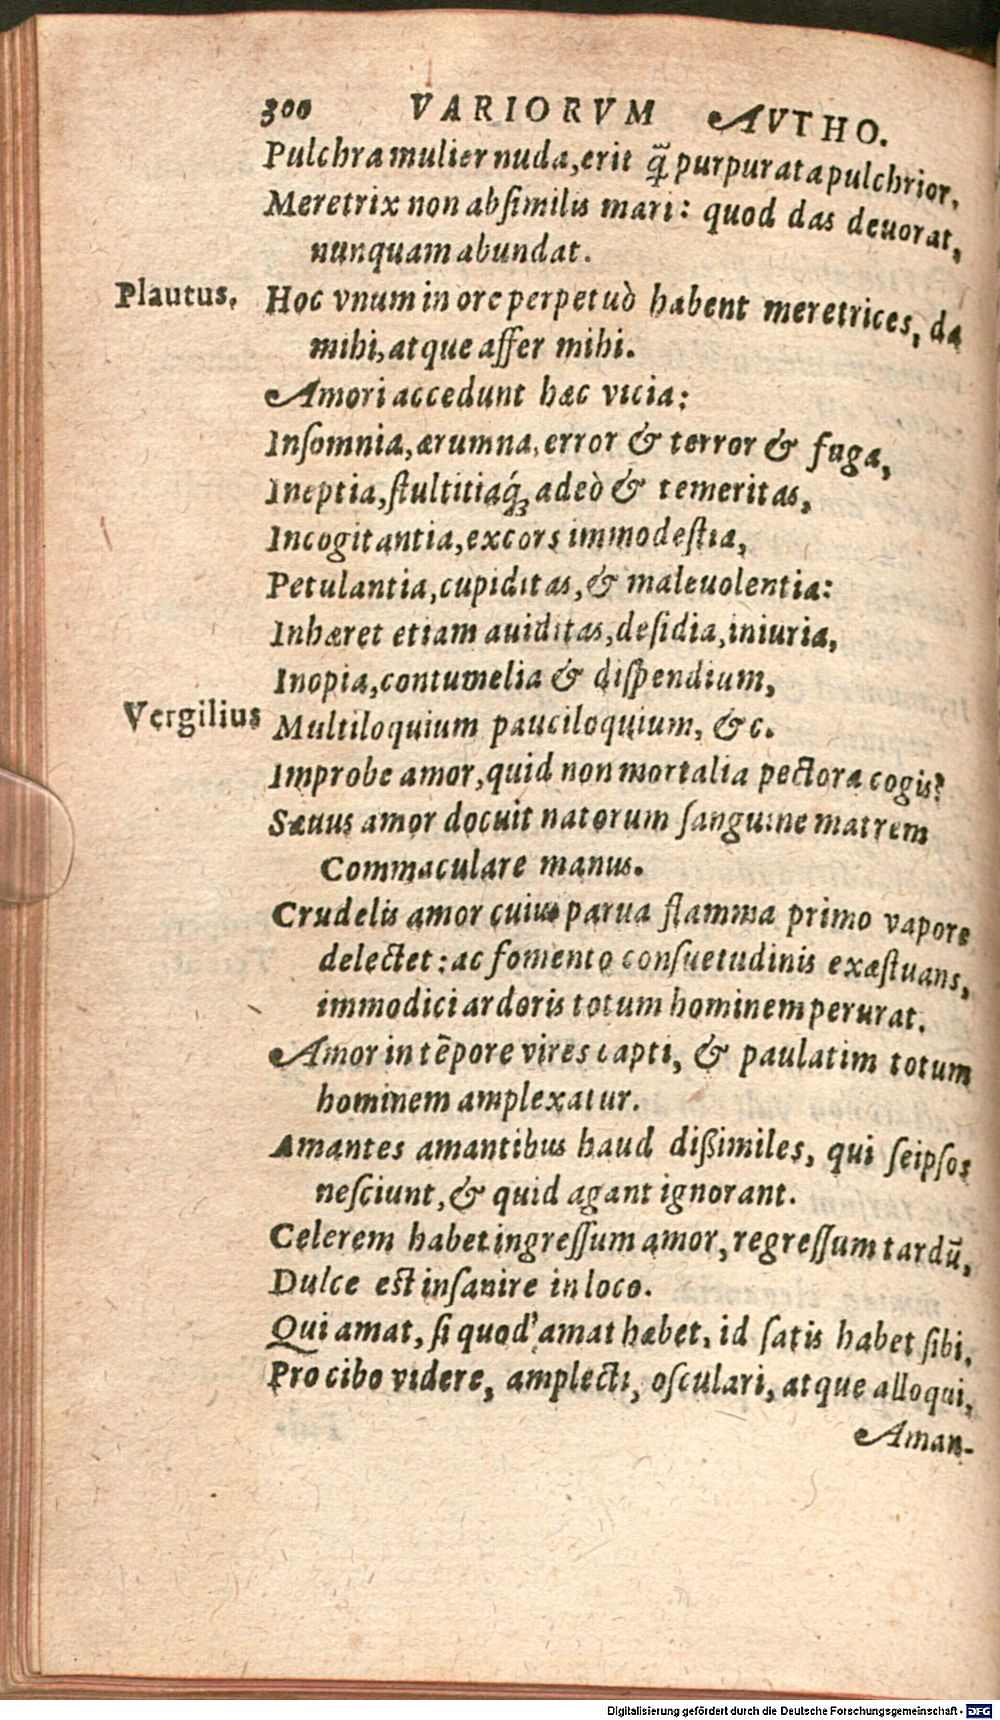 300 VARIORVM AVTHO.
Pulchra mulier nuda, erit q̃ purpurata pulchrior.
Meretrix non absimilis mari: quod das deuorat,
nunquam abundat.
Plautus. Hoc vnum in ore perpetuò habent meretrices, da
mihi, atque affer mihi.
Amori accedunt hæc vicia:
Insomnia, ærumna, error & terror & fuga,
Ineptia, stultitiaq́; adeò & temeritas,
Incogitantia, excors immodestia,
Petulantia, cupiditas, & maleuolentia:
Inhæret etiam auiditas, desidia, iniuria,
Inopia, contumelia & dispendium,
Vergilius Multiloquium pauciloquium, &c.
Improbe amor, quid non mortalia pectora cogis?
Sæuus amor docuit natorum sanguine matrem
Commaculare manus.
Crudelis amor cuius parua flamma primo vapore
delectet: ac fomento consuetudinis exæstuans,
immodici ardoris totum hominem perurat.
Amor in tẽpore vires capti, & paulatim totum
hominem amplexatur.
Amantes amantibus haud dißimiles, qui seipsos
nesciunt, & quid agant ignorant.
Celerem habet ingressum amor, regressum tardũ,
Dulce est insanire in loco.
Qui amat, si quod amat habet, id satis habet sibi,
Pro cibo videre, amplecti, osculari, atque alloqui,
Aman-
Digitalisierung gefördert durch die Deutsche Forschungsgemeinschaft - DFG